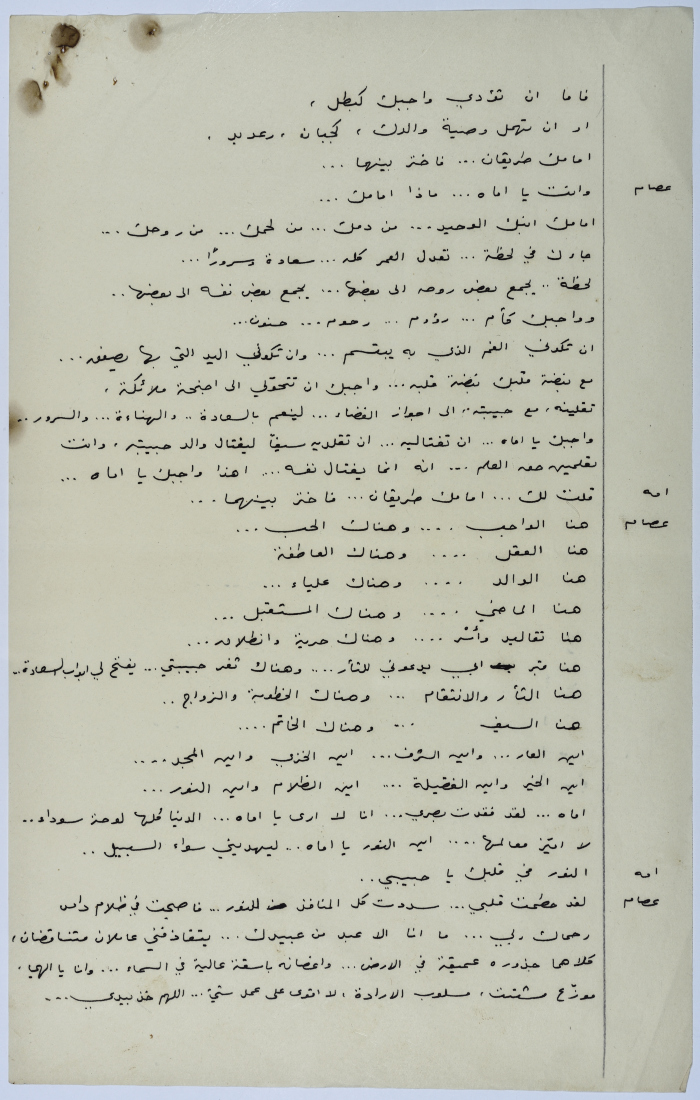 فاما ان تؤدي واجبك كبطل ،
او ان تهمل وصية والدك ، كجبان ، رعديد .
امامك طريقان ... فاختر بينهما ...
عصام وانت يا اماه ... ماذا امامك ...
امامك ابنك الوحيد ... من دمك ... من لحمك ... من روحك ...
في لحظة ... تعدل العمر كله ... سعادة وسرورًا ...
لحظة .. يجمع بعض روحه الى بعضها ... يجمع بعض نفسه الى بعضها ..
وواجبك كأم ... رؤوم ... رحوم ... حنون ...
ان تكوني الفم الذي به يبتسم ... وان تكوني اليد التي بها يصفق ...
مع نبضة قلبك نبضة قلبه ... واجبك ان تتحولي الى اجنحة ملائكة ،
تقلينه ، مع حبيبته ، الى اجواز الفضاء ... لينعم بالسعادة .. والهناءة ... والسرور ..
واجبك يا اماه ... ان تغتاليه ... ان تقلديه سيفًا ليغتال والد حبيبته ، وانت
تعلمين حق العلم ... انه انما يغتال نفسه ... اهذا واجبك يا اماه ...
امه قلت لك ... امامك طريقان ... فاختر بينهما ...
عصام هنا الواجب .... وهناك الحب ...
هنا العقل .... وهناك العاطفة
هنا الوالد .... وهناك علياء ...
هنا الماضي .... وهناك المستقبل ...
هنا تقاليد وأسر .... وهناك حرية وانطلاق ...
هنا قبر ابي يدعوني للثأر .... وهناك ثغر حبيبتي ... يفتح لي ابواب السعادة ..
هنا الثأر والانتقام ... وهناك الخطوبة والزواج ..
هنا السيف ... وهناك الخاتم ....
اين العار ... واين الشرف ... اين الخزي واين المجد ....
اين الخير واين الفضيلة .... اين الظلام واين النور ...
اماه ... لقد فقدت بصري ... انا لا ارى يا اماه ... الدنيا كلها لوحة سوداء ..
لا اميّز معالمها .... اين النور يا اماه .. ليهديني سواء السبيل ..
امه النور في قلبك يا حبيبي ..
عصام لقد حطمت قلبي ... سددت كل المنافذ للنور ... فاصبحت في ظلام دامس
رحماك ربي ... ما انا الا عبد من عبيدك ... يتقاذفني عاملان متناقضان ،
كلاهما جذوره عميقة في الارض ... واغصانه باسقة عالية في السماء ... وانا يا الهي ،
موزّع مشتت ، مسلوب الارادة ، لا اقوى على عمل شيء ... اللهم خذ بيدي ....